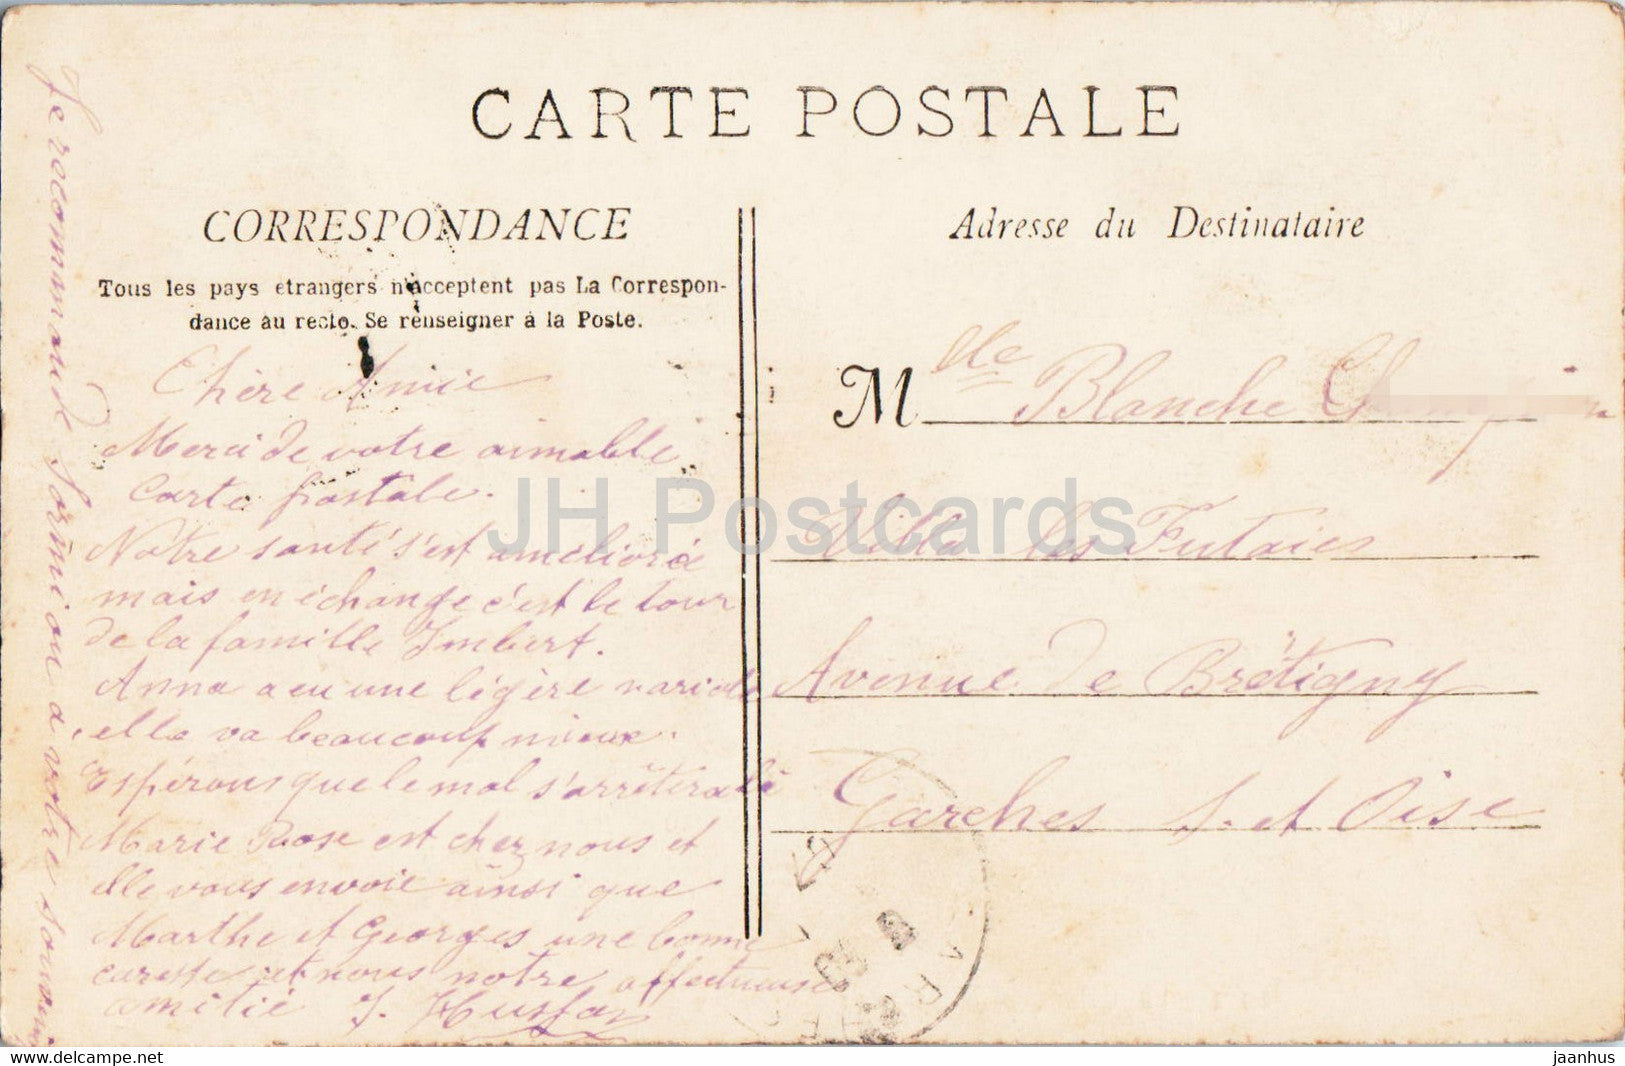 CARTE POSTALE
CORRESPONDANCE
Tous les pays etrangers n'acceptent pas La Correspon-
dance au recto. Se renseigner à la Poste.
Chère Amie
Merci de votre aimable
Carte postale.
Notre santé s'est améliorée
mais en échange c'est le tour
de la famille Imbert.
Anna a eu une légère variole
elle va beaucoup mieux.
Espérons que le mal s'arrêtera là
Marie Rose est chez nous et
elle vous envoie ainsi que
Marthe et Georges une bonne
caresse et nous notre affectueuse
amitié J.
Je recommande Sormiou à votre souvenir
Adresse du Destinataire
Mlle Blanche
Villa les Futaies
Avenue de Brétigny
Garches S. et Oise
JH Postcards
www.delcampe.net
jaanhus